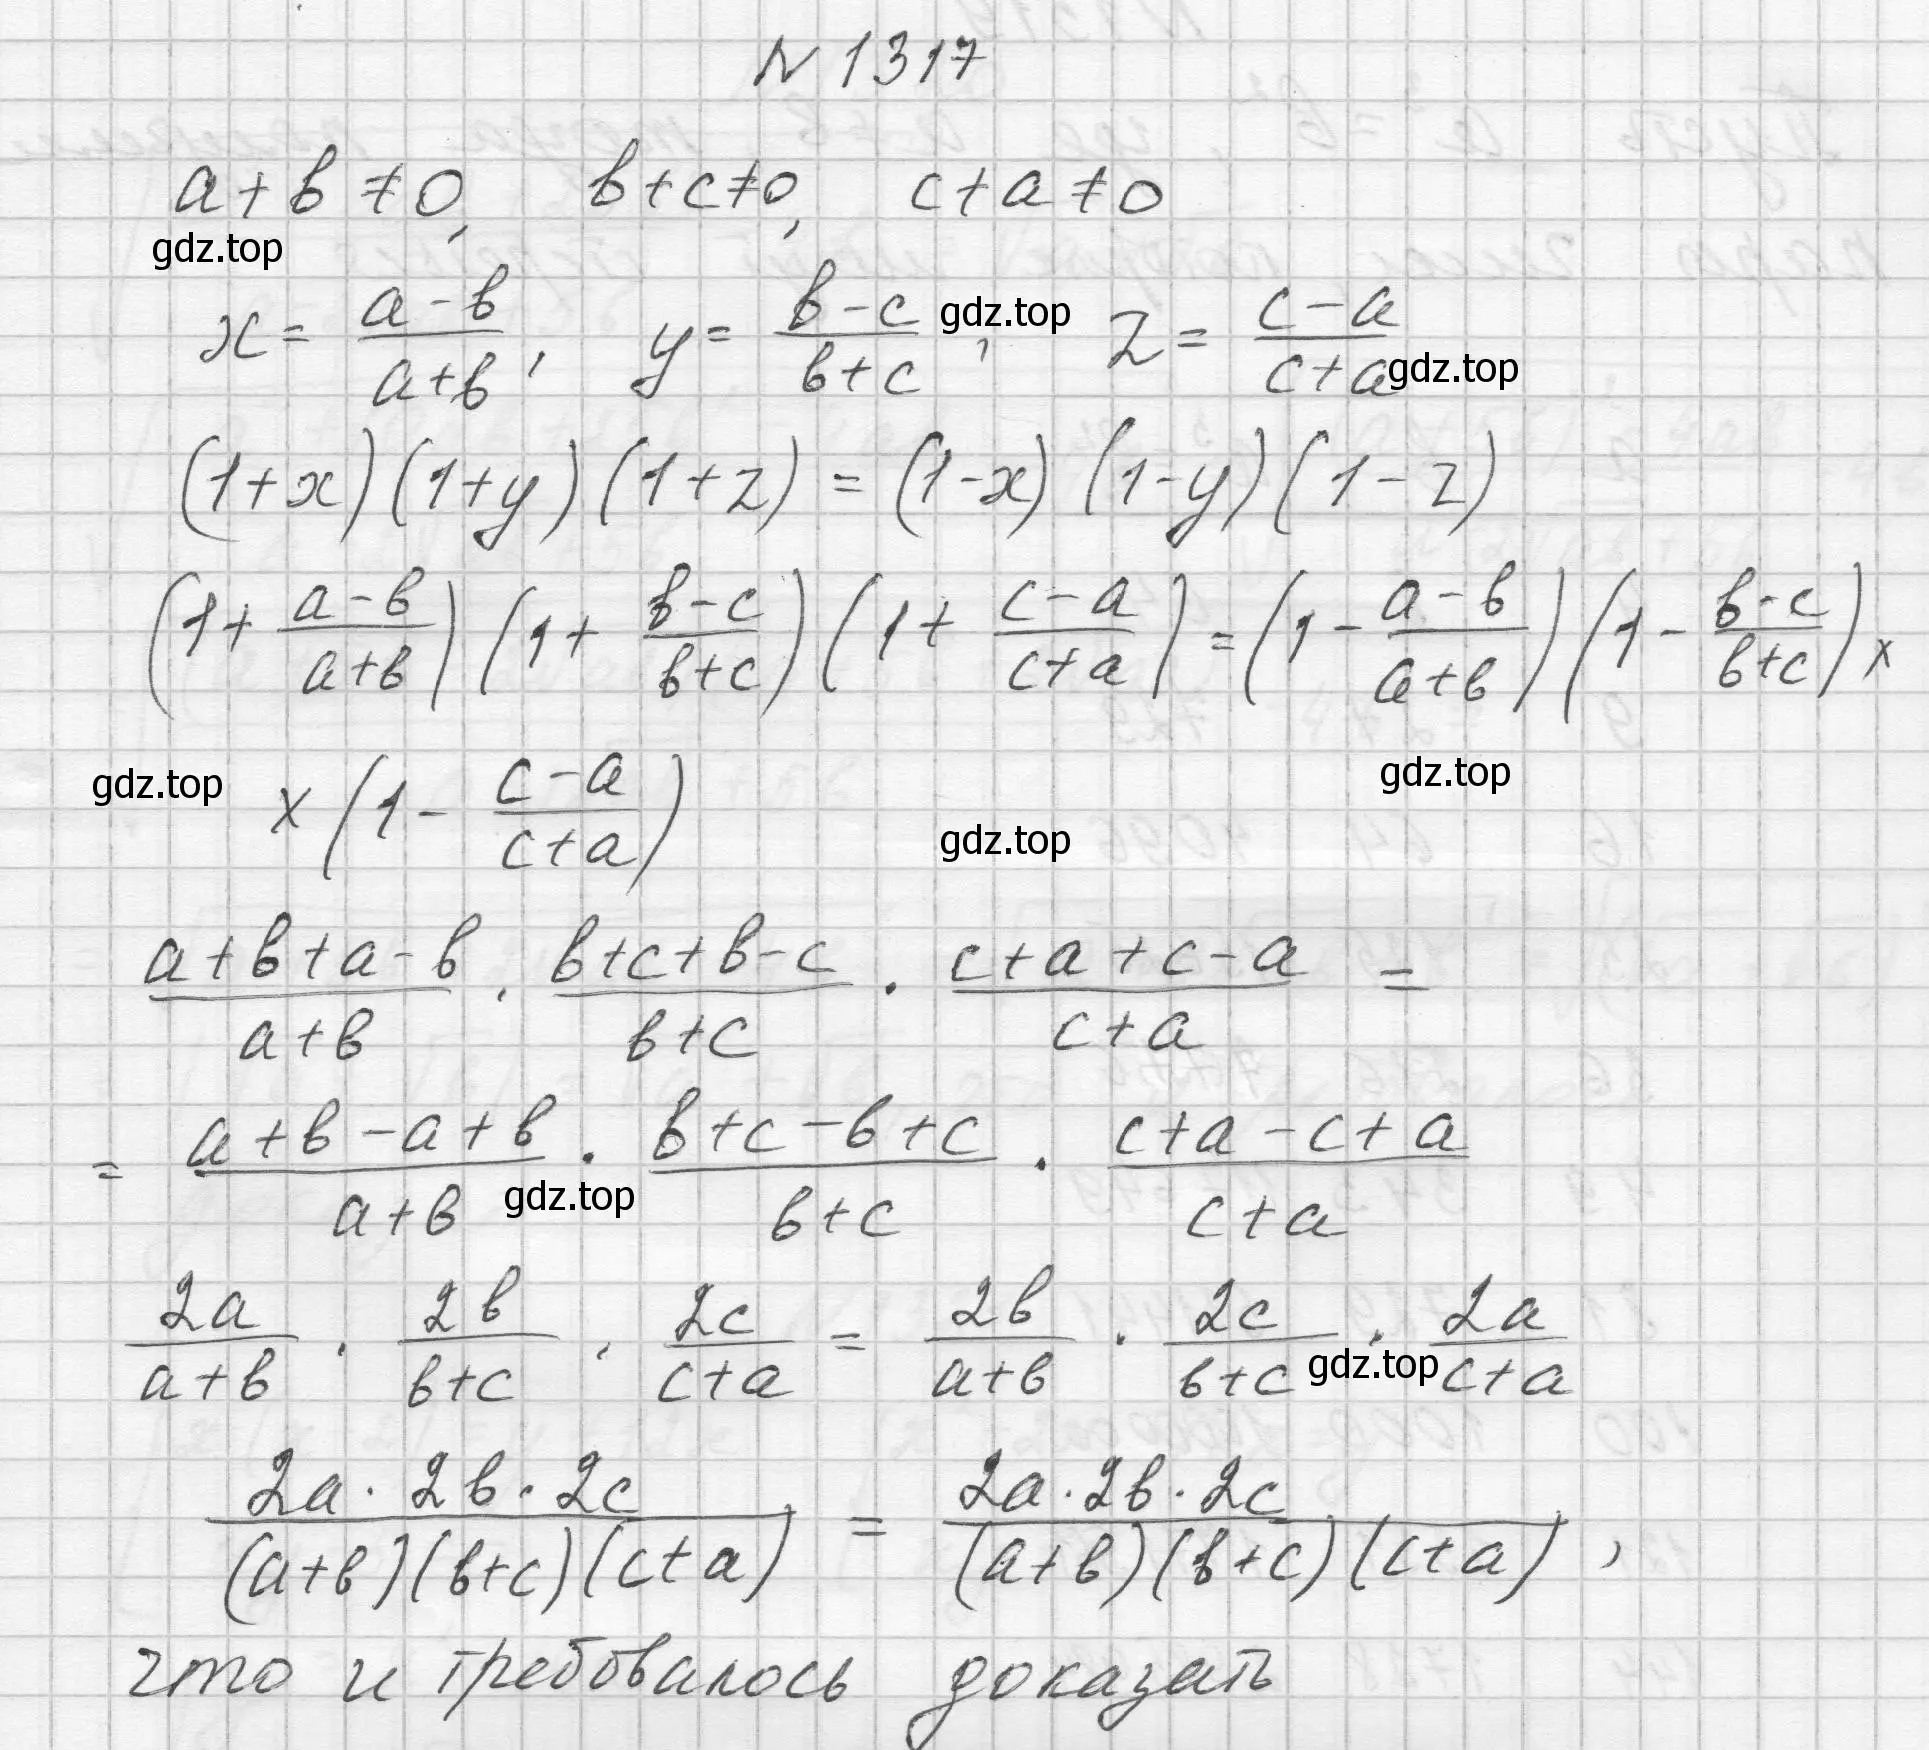 N 1317
a+b≠0, b+c≠0, c+a≠0
gdz.top
x = (a-b)/(a+b), y = (b-c)/(b+c), z = (c-a)/(c+a)
gdz.top
gdz.top
(1+x)(1+y)(1+z) = (1-x)(1-y)(1-z)
(1 + (a-b)/(a+b))(1 + (b-c)/(b+c))(1 + (c-a)/(c+a)) = (1 - (a-b)/(a+b))(1 - (b-c)/(b+c)) ×
× (1 - (c-a)/(c+a))
gdz.top
gdz.top
gdz.top
(a+b+a-b)/(a+b) · (b+c+b-c)/(b+c) · (c+a+c-a)/(c+a) =
= (a+b-a+b)/(a+b) · (b+c-b+c)/(b+c) · (c+a-c+a)/(c+a)
gdz.top
2a/(a+b) · 2b/(b+c) · 2c/(c+a) = 2b/(a+b) · 2c/(b+c) · 2a/(c+a)
gdz.top
(2a·2b·2c)/((a+b)(b+c)(c+a)) = (2a·2b·2c)/((a+b)(b+c)(c+a)),
что и требовалось доказать